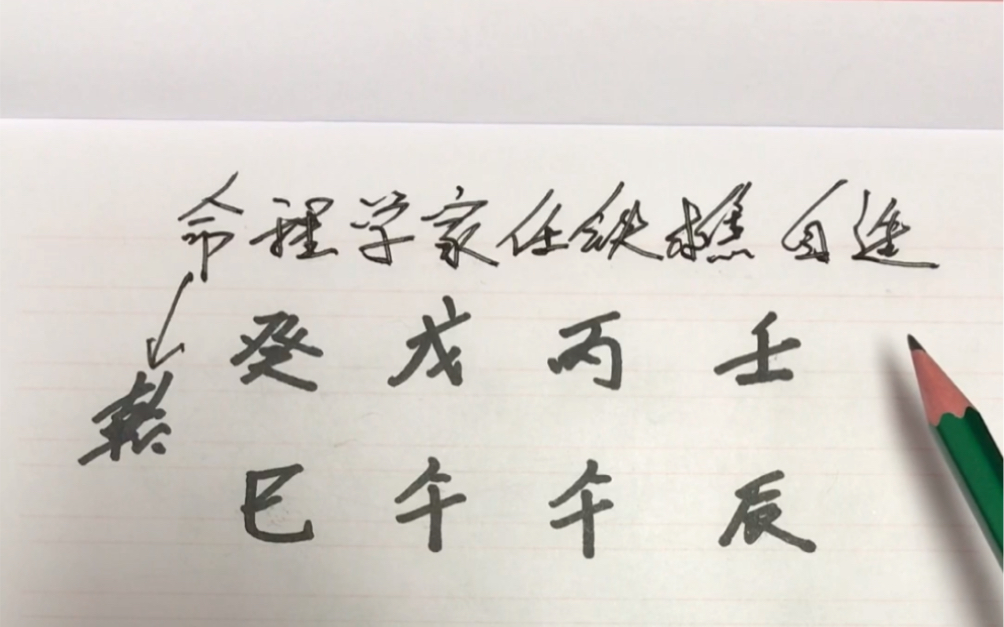 命理学家任铁樵自造
癸 戊 丙 壬
乾
巳 午 午 辰